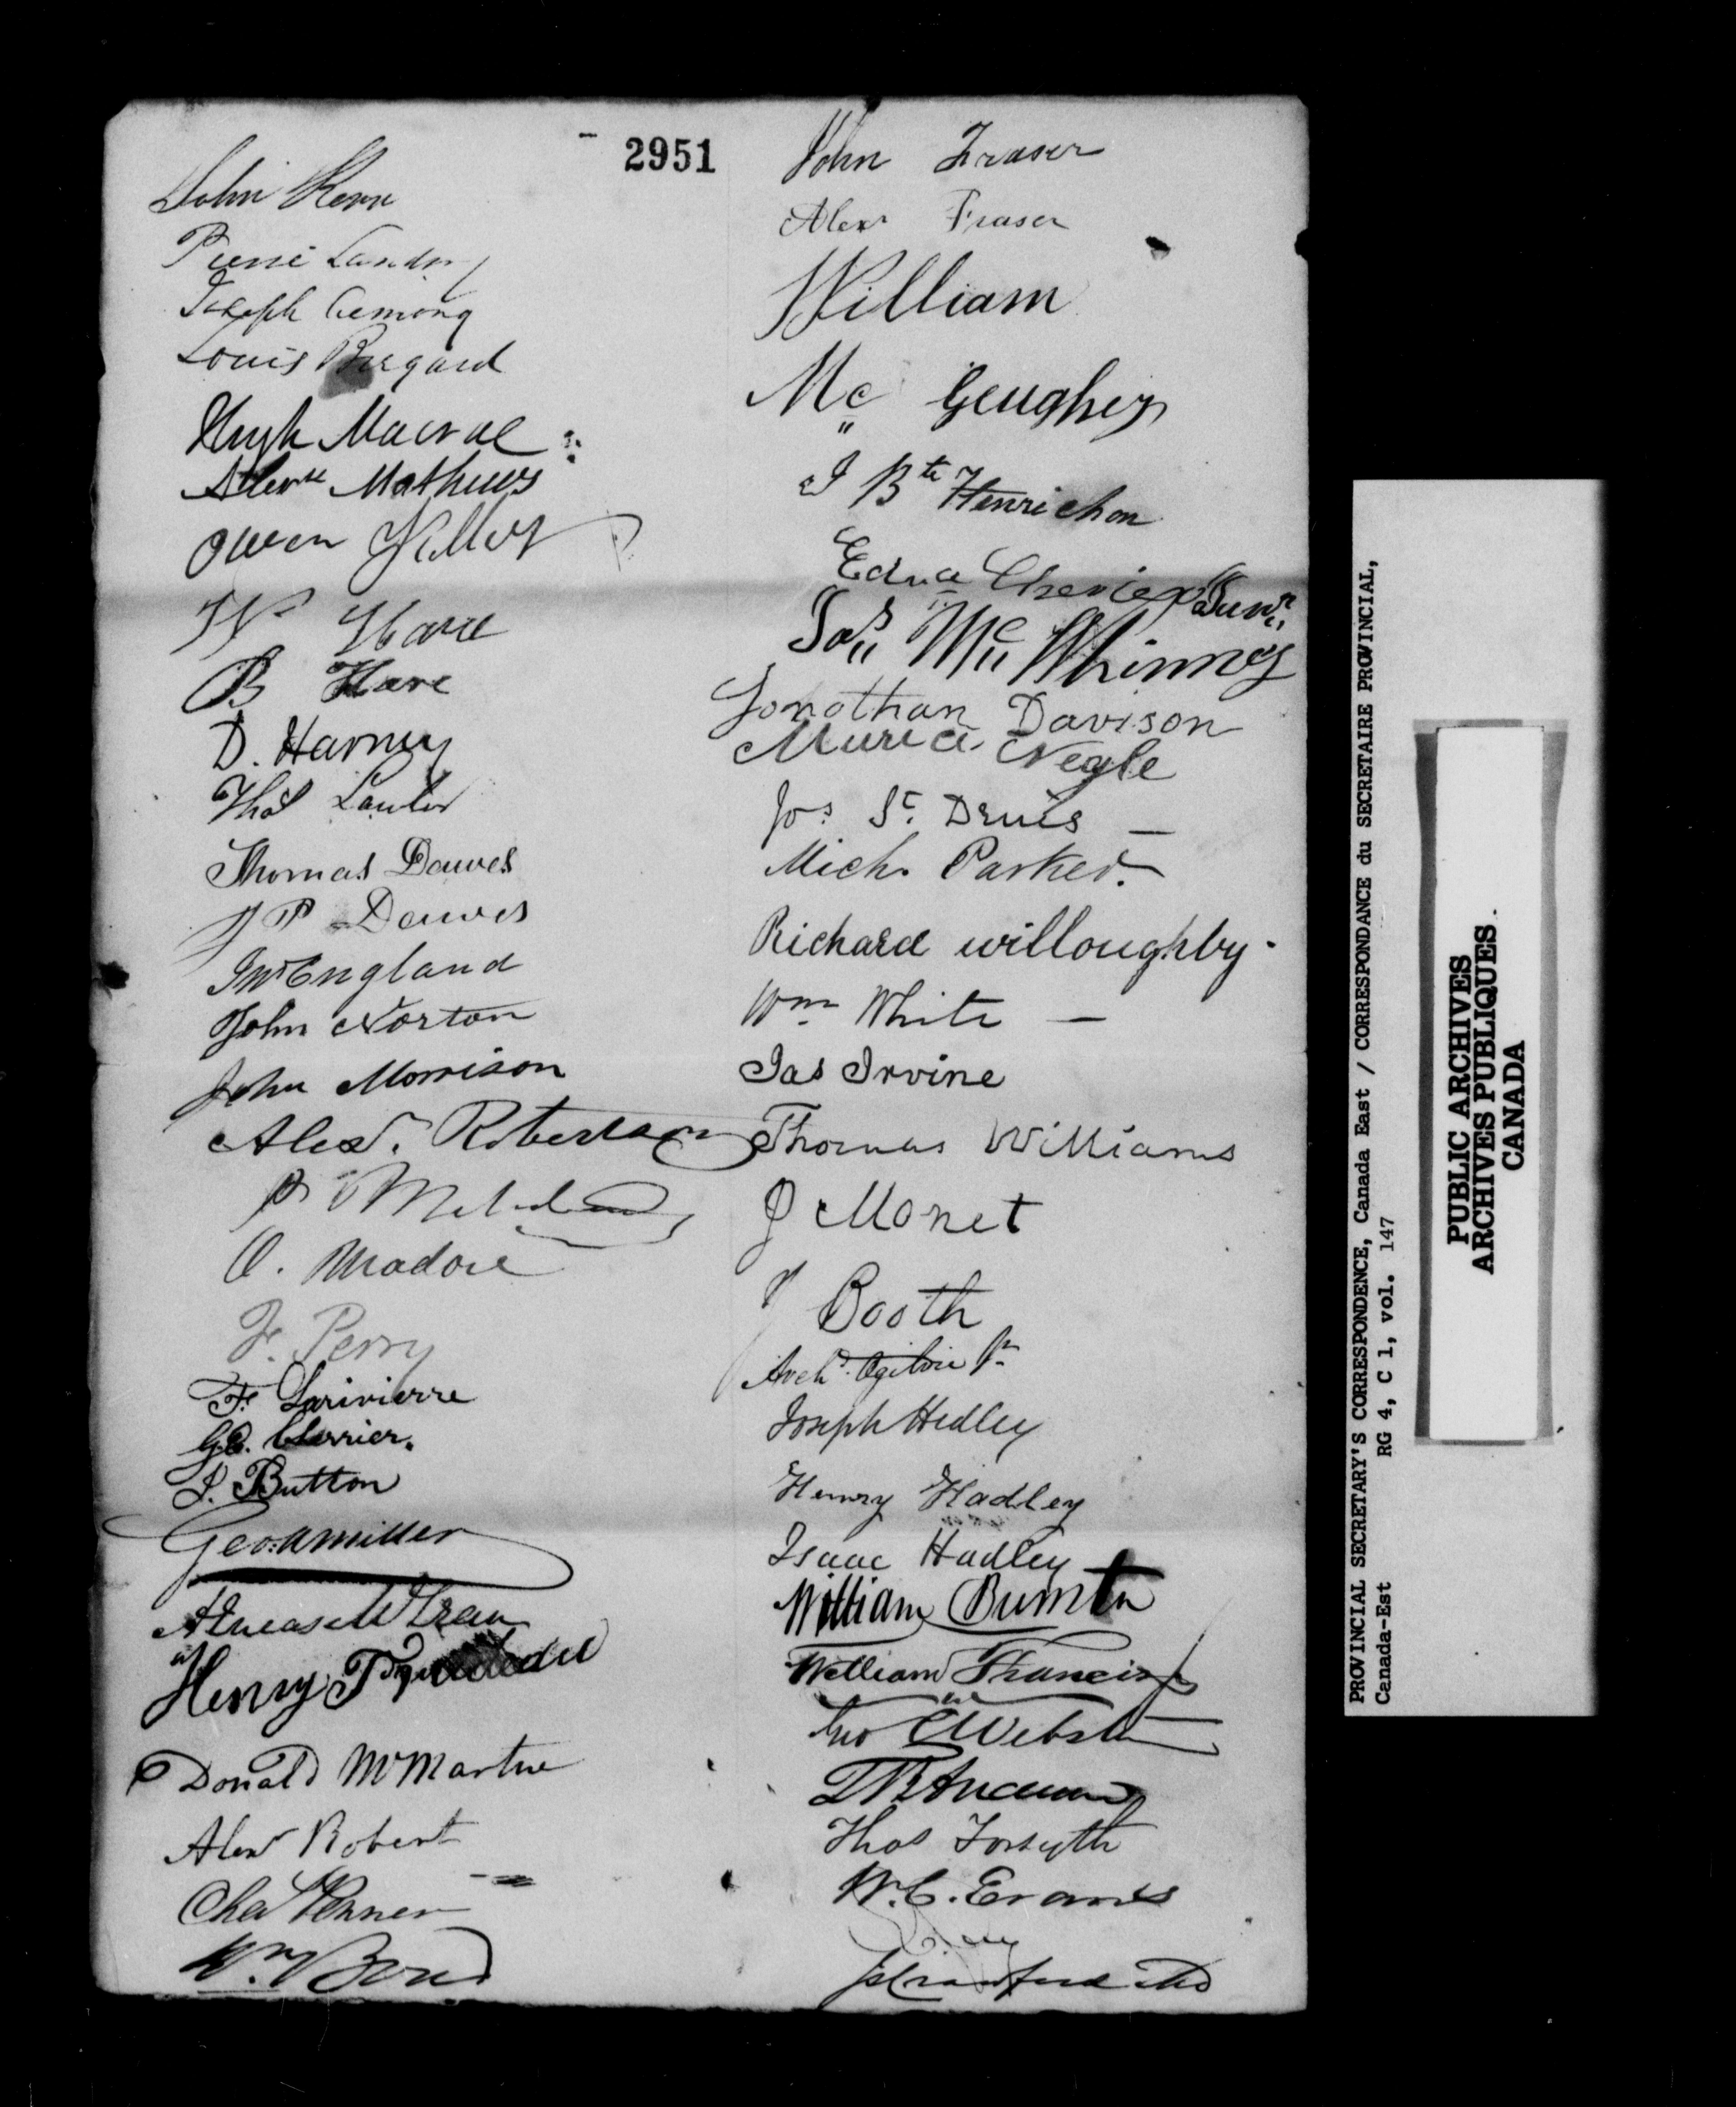 2951
John Kerr
Pierre Landry
Joseph
Louis
Hugh Macrae
Mathews
Owen
Hare
B Hare
D. Harney
Thos Lawlor
Thomas Dawes
J P Dawes
England
John Norton
John Morrison
Alexr. Robertson
O. Madore
F. Perry
F. Larivierre
J. Button
Geo: A Miller
Henry
Donald McMartin
Alexr Robert
Chas Penner
Wm Bond
John Fraser
Alexr Fraser
William
Mc Geughey
J Bte Henrichon
Jas Mc Whinney
Jonathan Davison
Negle
Jos. St. Denis
Mich. Parker.
Richard willoughby.
Wm White
Jas Irvine
Thomas Williams
J Monet
J Booth
Archd. Ogilvie Jr
Joseph Hedley
Henry Hadley
Isaac Hadley
William
William Francis
Geo Webster
Thos Forsyth
W. C. Evans
Crawford MD
PROVINCIAL SECRETARY'S CORRESPONDENCE, Canada East / CORRESPONDANCE du SECRETAIRE PROVINCIAL,
Canada-Est RG 4, C 1, vol. 147
PUBLIC ARCHIVES
ARCHIVES PUBLIQUES
CANADA